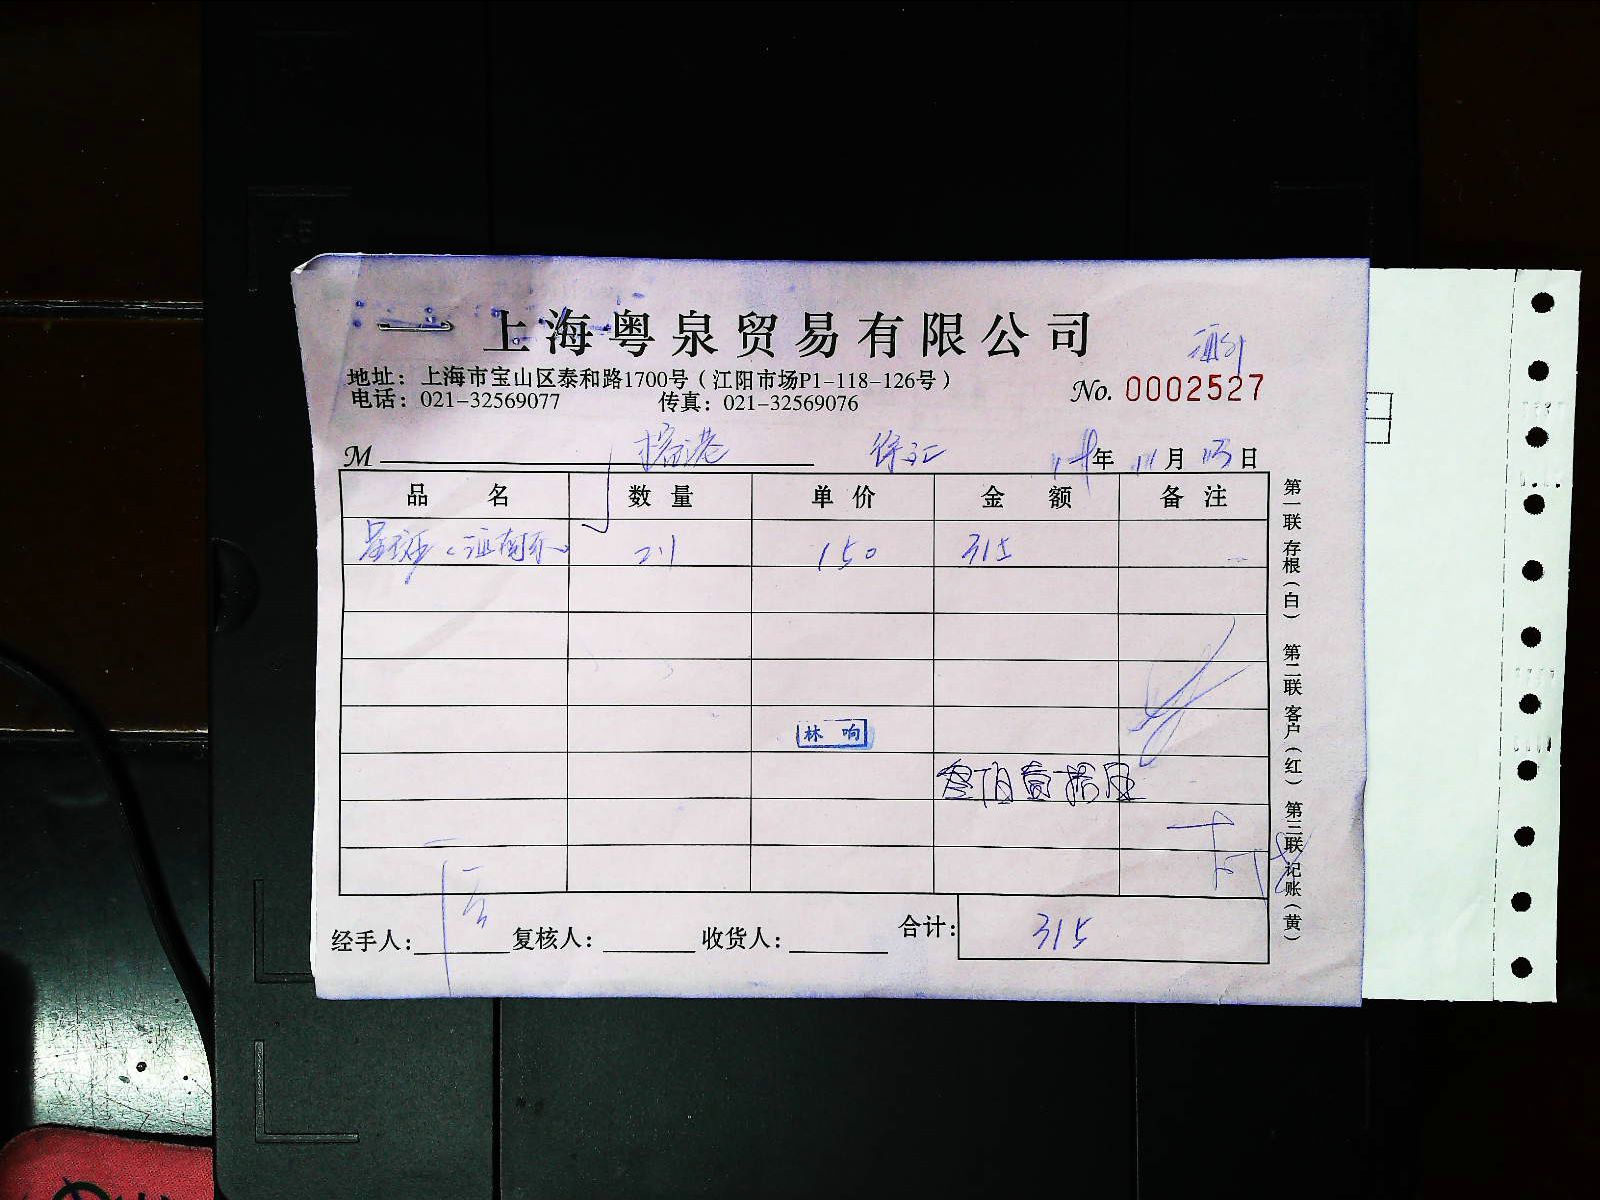 上海粤泉贸易有限公司
地址：上海市宝山区泰和路1700号（江阳市场P1-118-126号）
电话：021-32569077 传真：021-32569076
No. 0002527
M 徐汇 14年 11月 13日
品 名 数量 单价 金 额 备注
2.1 150 315
林 响
叁佰壹拾伍
经手人： 复核人： 收货人： 合计： 315
第一联 存根（白） 第二联 客户（红） 第三联 记账（黄）